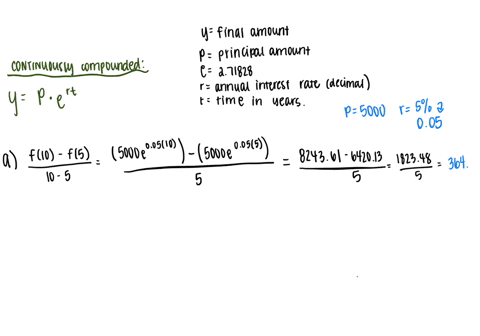 y = final amount
P = principal amount
e = 2.71828
r = annual interest rate (decimal)
t = time in years.
continuously compounded:
y = P · e^rt
P = 5000 r = 5% → 0.05
a) (f(10) - f(5)) / (10 - 5) = ((5000e^0.05(10)) - (5000e^0.05(5))) / 5 = (8243.61 - 6420.13) / 5 = 1823.48 / 5 = 364.